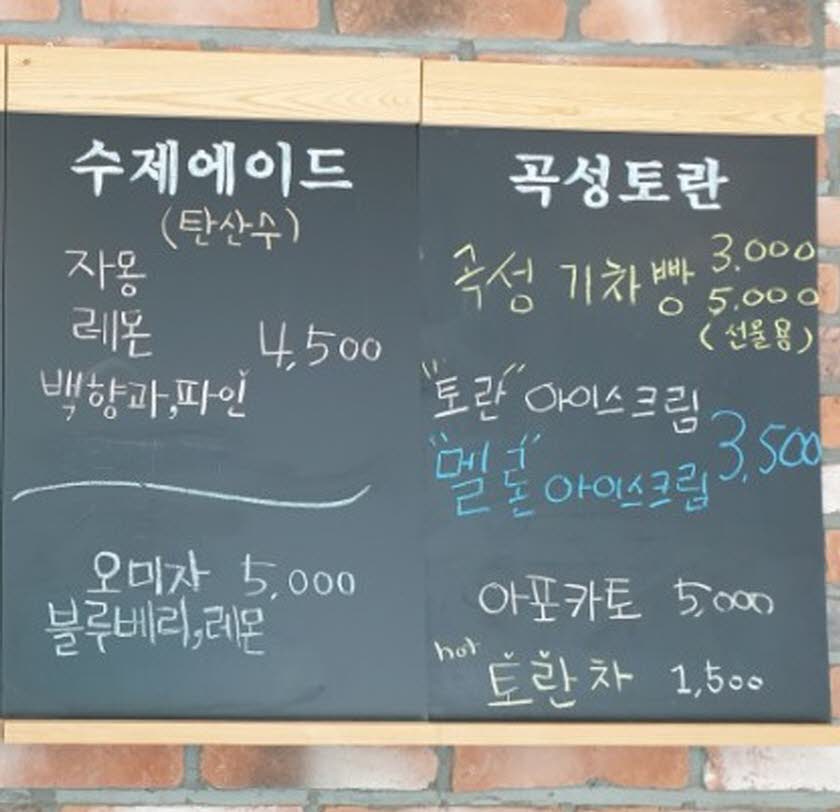 수제에이드
(탄산수)
자몽
레몬 4,500
백향과,파인
오미자 5,000
블루베리,레몬
곡성토란
곡성 기차빵 3.000
5.000
(선물용)
"토란" 아이스크림
"멜론" 아이스크림 3,500
아포카토 5,000
hot 토란차 1,500